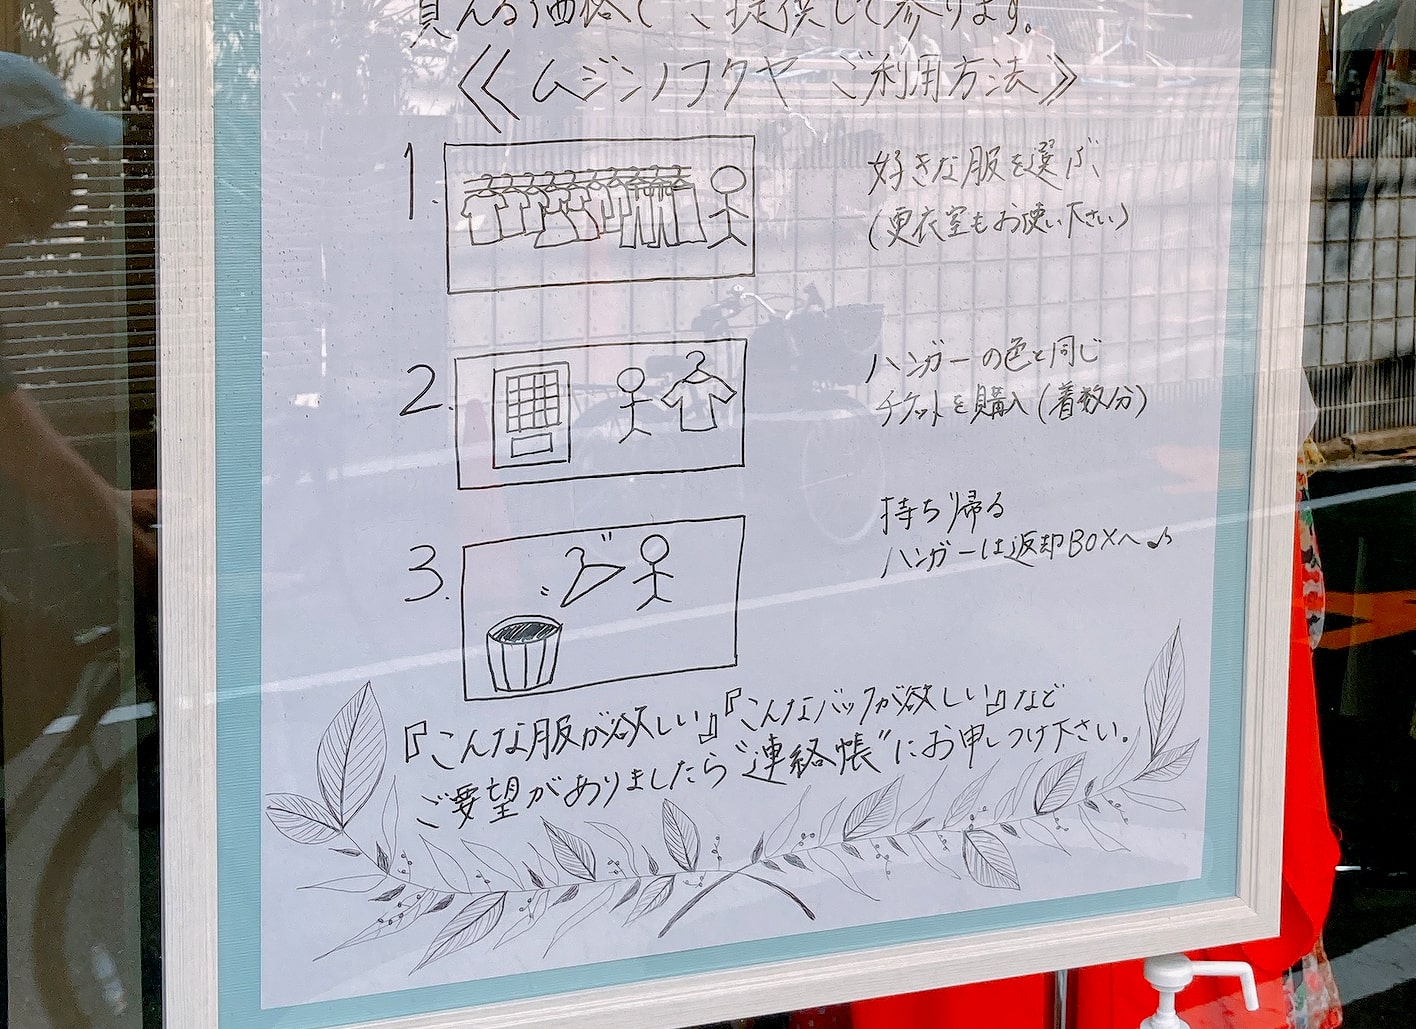 買える価格でご提供して参ります。
≪ムジンノフクヤ ご利用方法≫
1.
好きな服を選ぶ
(更衣室もお使い下さい)
2.
ハンガーの色と同じ
チケットを購入(着数分)
3.
持ち帰る
ハンガーは返却BOXへ♪
『こんな服が欲しい』『こんなバッグが欲しい』など
ご要望がありましたら"連絡帳"にお申しつけ下さい。